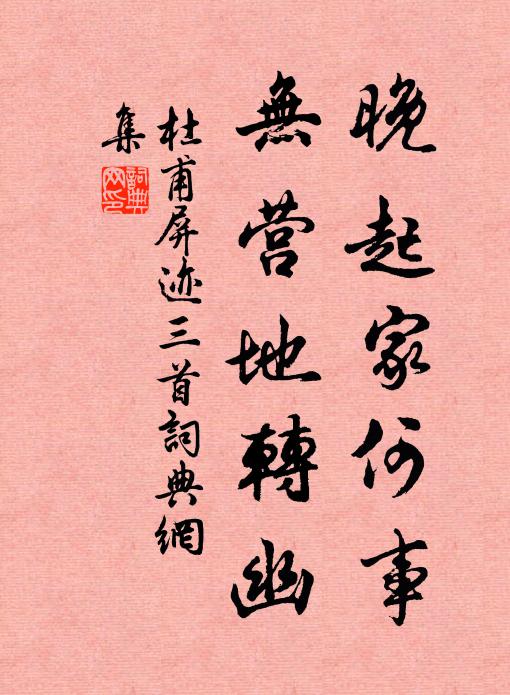 晚起家何事
無营地轉幽
杜甫屏迹三首詞典網
集
詞典网印